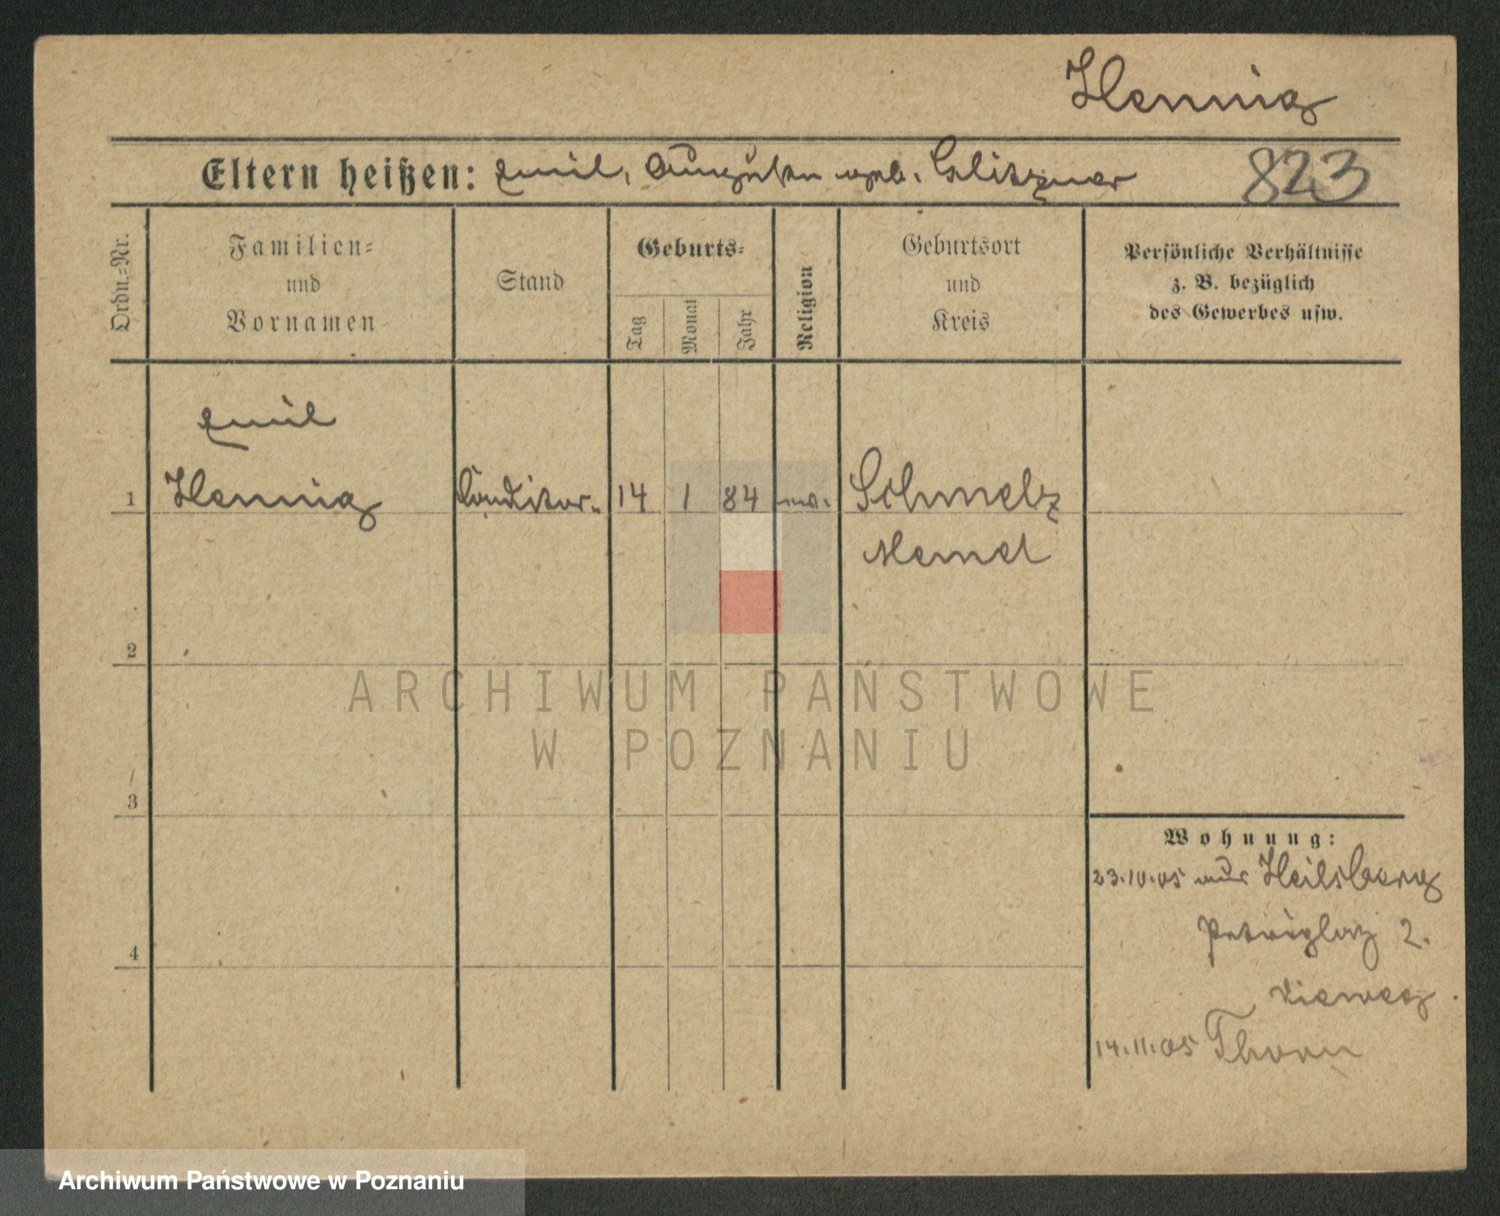 Hennig
Eltern heißen: Emil, Auguste geb. 823
Ordn.-Nr.
Familien-
und
Vornamen
Stand
Geburts-
Tag
Monat
Jahr
Religion
Geburtsort
und
Kreis
Persönliche Verhältnisse
z. B. bezüglich
des Gewerbes usw.
Emil
1 Hennig Conditor. 14 1 84 ev. Schmelz
Memel
2
3
4
Wohnung:
23.10.05 aus Heilsberg
Petriplaz 2.
Vieweg
14.11.05 Thorn
ARCHIWUM PAŃSTWOWE
W POZNANIU
Archiwum Państwowe w Poznaniu